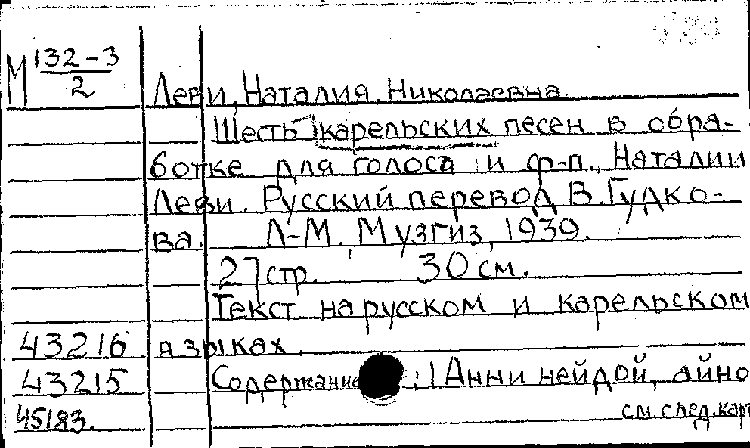 М 132-3/2
Леви, Наталия Николаевна.
Шесть карельских песен в обра-
ботке для голоса и ф-п., Наталии
Леви. Русский перевод В. Гудко-
ва. Л-М. Музгиз, 1939.
27 стр. 30 см.
Текст на русском и карельском
43216 языках.
43215 Содержание: 1 Анни нейдой, айно
45183. см. след. карт